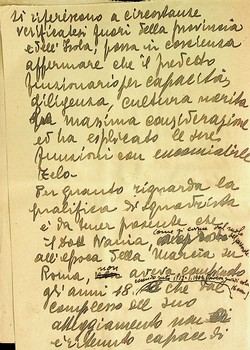 si riferiscono a circostanze
verificatesi fuori della provincia
e dell'Isola, posso in coscienza
affermare che il predetto
funzionario per capacità,
diligenza, cultura merita
la massima considerazione
ed ha esplicato le sue
funzioni con encomiabile
zelo.
Per quanto riguarda la
qualifica di squadrista
è da tener presente che
il Dott.
all'epoca della Marcia su
Roma, non aveva compiuto
gli anni 18. che dal
complesso del suo
atteggiamento non
è ritenuto capace di